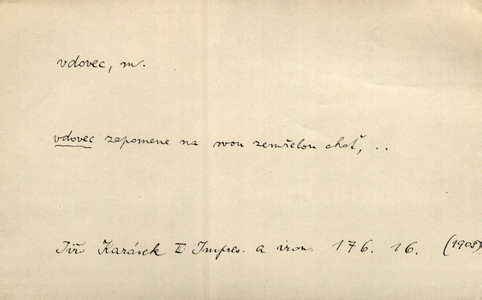 vdovec, m.
vdovec zapomene na svou zemřelou choť, ..
Jiř. Karásek II Impres. a iron. 176. 16. (1903)